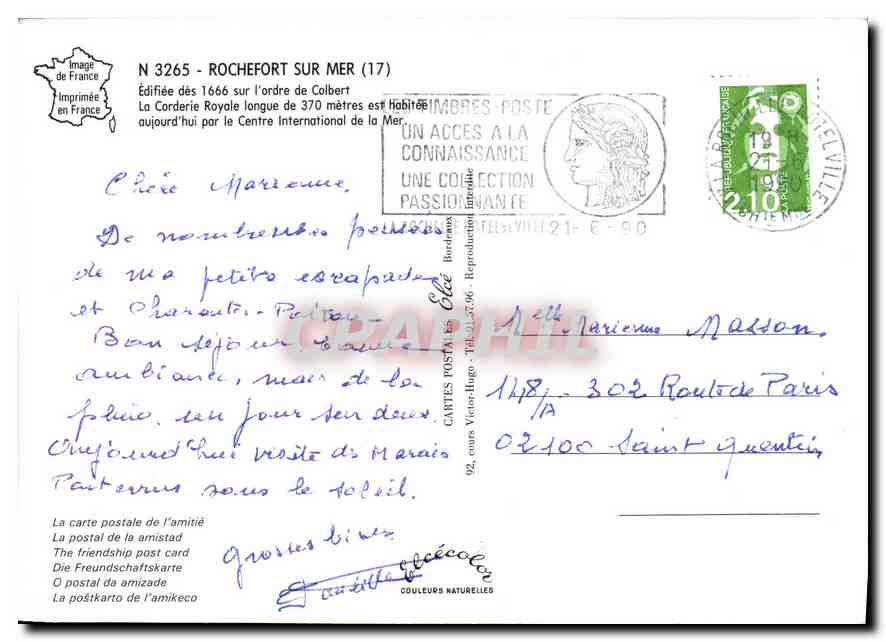 Image
de France
Imprimée
en France
N 3265 - ROCHEFORT SUR MER (17)
Édifiée dès 1666 sur l'ordre de Colbert
La Corderie Royale longue de 370 mètres est habitée
aujourd'hui par le Centre International de la Mer.
LES TIMBRES-POSTE
UN ACCES A LA
CONNAISSANCE
UNE COLLECTION
PASSIONNANTE
21-6-90
REPUBLIQUE FRANÇAISE
LA POSTE
2,10
19 H
21-6
1990
Chère Marienne.
De nombreuses pensées
de ma petite escapade
et Charentes-Poitou-
Bon séjour, bonne
ambiance, mais de la
pluie. un jour sur deux.
Aujourd'hui visite du Marais
Poitevin sous le soleil.
Grosses bises
CARTES POSTALES Elcé Bordeaux
92, cours Victor-Hugo - Tél. 91.57.96 - Reproduction interdite
CPAPHIL
Melle Marienne Masson.
148/A - 302 Route de Paris
02100 Saint Quentin
La carte postale de l'amitié
La postal de la amistad
The friendship post card
Die Freundschaftskarte
O postal da amizade
La poŝtkarto de l'amikeco
elcécolor
COULEURS NATURELLES